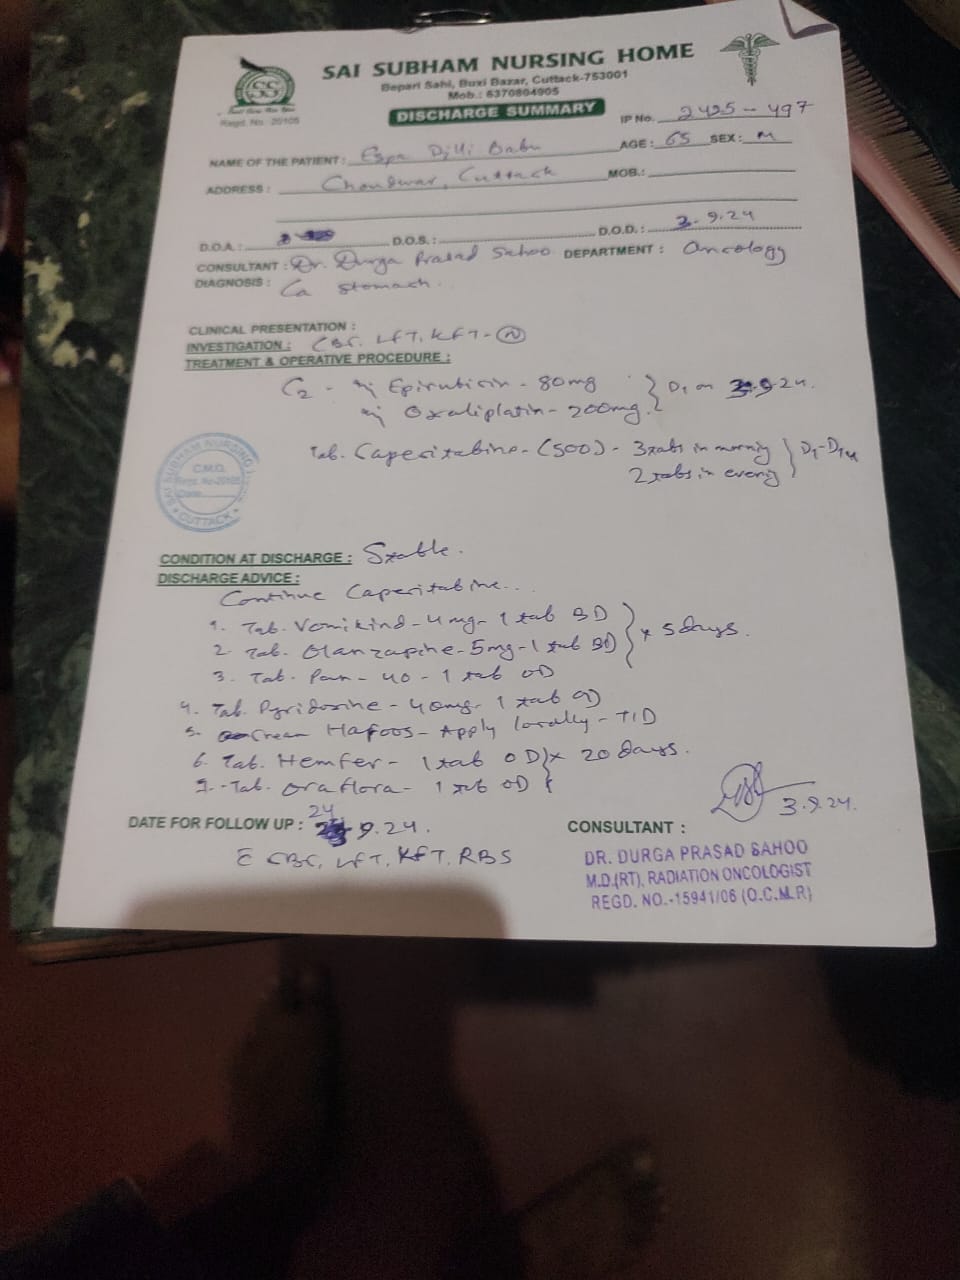 SAI SUBHAM NURSING HOME
Bepari Sahi, Buxi Bazar, Cuttack-753001
Mob.: 6370804905
Regd. No. 20105
DISCHARGE SUMMARY
IP No. 2425-497
NAME OF THE PATIENT : Dilli Babu AGE : 65 SEX : M
ADDRESS : Choudwar, Cuttack MOB.:
D.O.A.: D.O.S.: D.O.D.: 3.9.24
CONSULTANT : Dr. Durga Prasad Sahoo DEPARTMENT : Oncology
DIAGNOSIS : Ca stomach.
CLINICAL PRESENTATION :
INVESTIGATION : CBC, LFT, KFT - N
TREATMENT & OPERATIVE PROCEDURE :
C2 - inj Epirubicin - 80mg
inj Oxaliplatin - 200mg } D1 on 3.9.24.
Tab. Capecitabine - (500) - 3 tabs in morning
2 tabs in evening } D1-D14
SAI SUBHAM NURSING
C.M.O.
Regd. No-20105
Date
CUTTACK
CONDITION AT DISCHARGE : Stable.
DISCHARGE ADVICE :
Continue Capecitabine..
1. Tab. Vomikind - 4mg - 1 tab BD
2. Tab. Olanzapine - 5mg - 1 tab BD } x 5 days.
3. Tab. Pan - 40 - 1 tab OD
4. Tab. Pyridoxine - 40mg - 1 tab OD
5. Cream Hafoos - Apply locally - TID
6. Tab. Hemfer - 1 tab OD } x 20 days.
7. Tab. Oraflora - 1 tab OD
3.9.24.
DATE FOR FOLLOW UP : 24 9.24.
CONSULTANT :
c̄ CBC, LFT, KFT, RBS
DR. DURGA PRASAD SAHOO
M.D.(RT), RADIATION ONCOLOGIST
REGD. NO.-15941/06 (O.C.M.R)